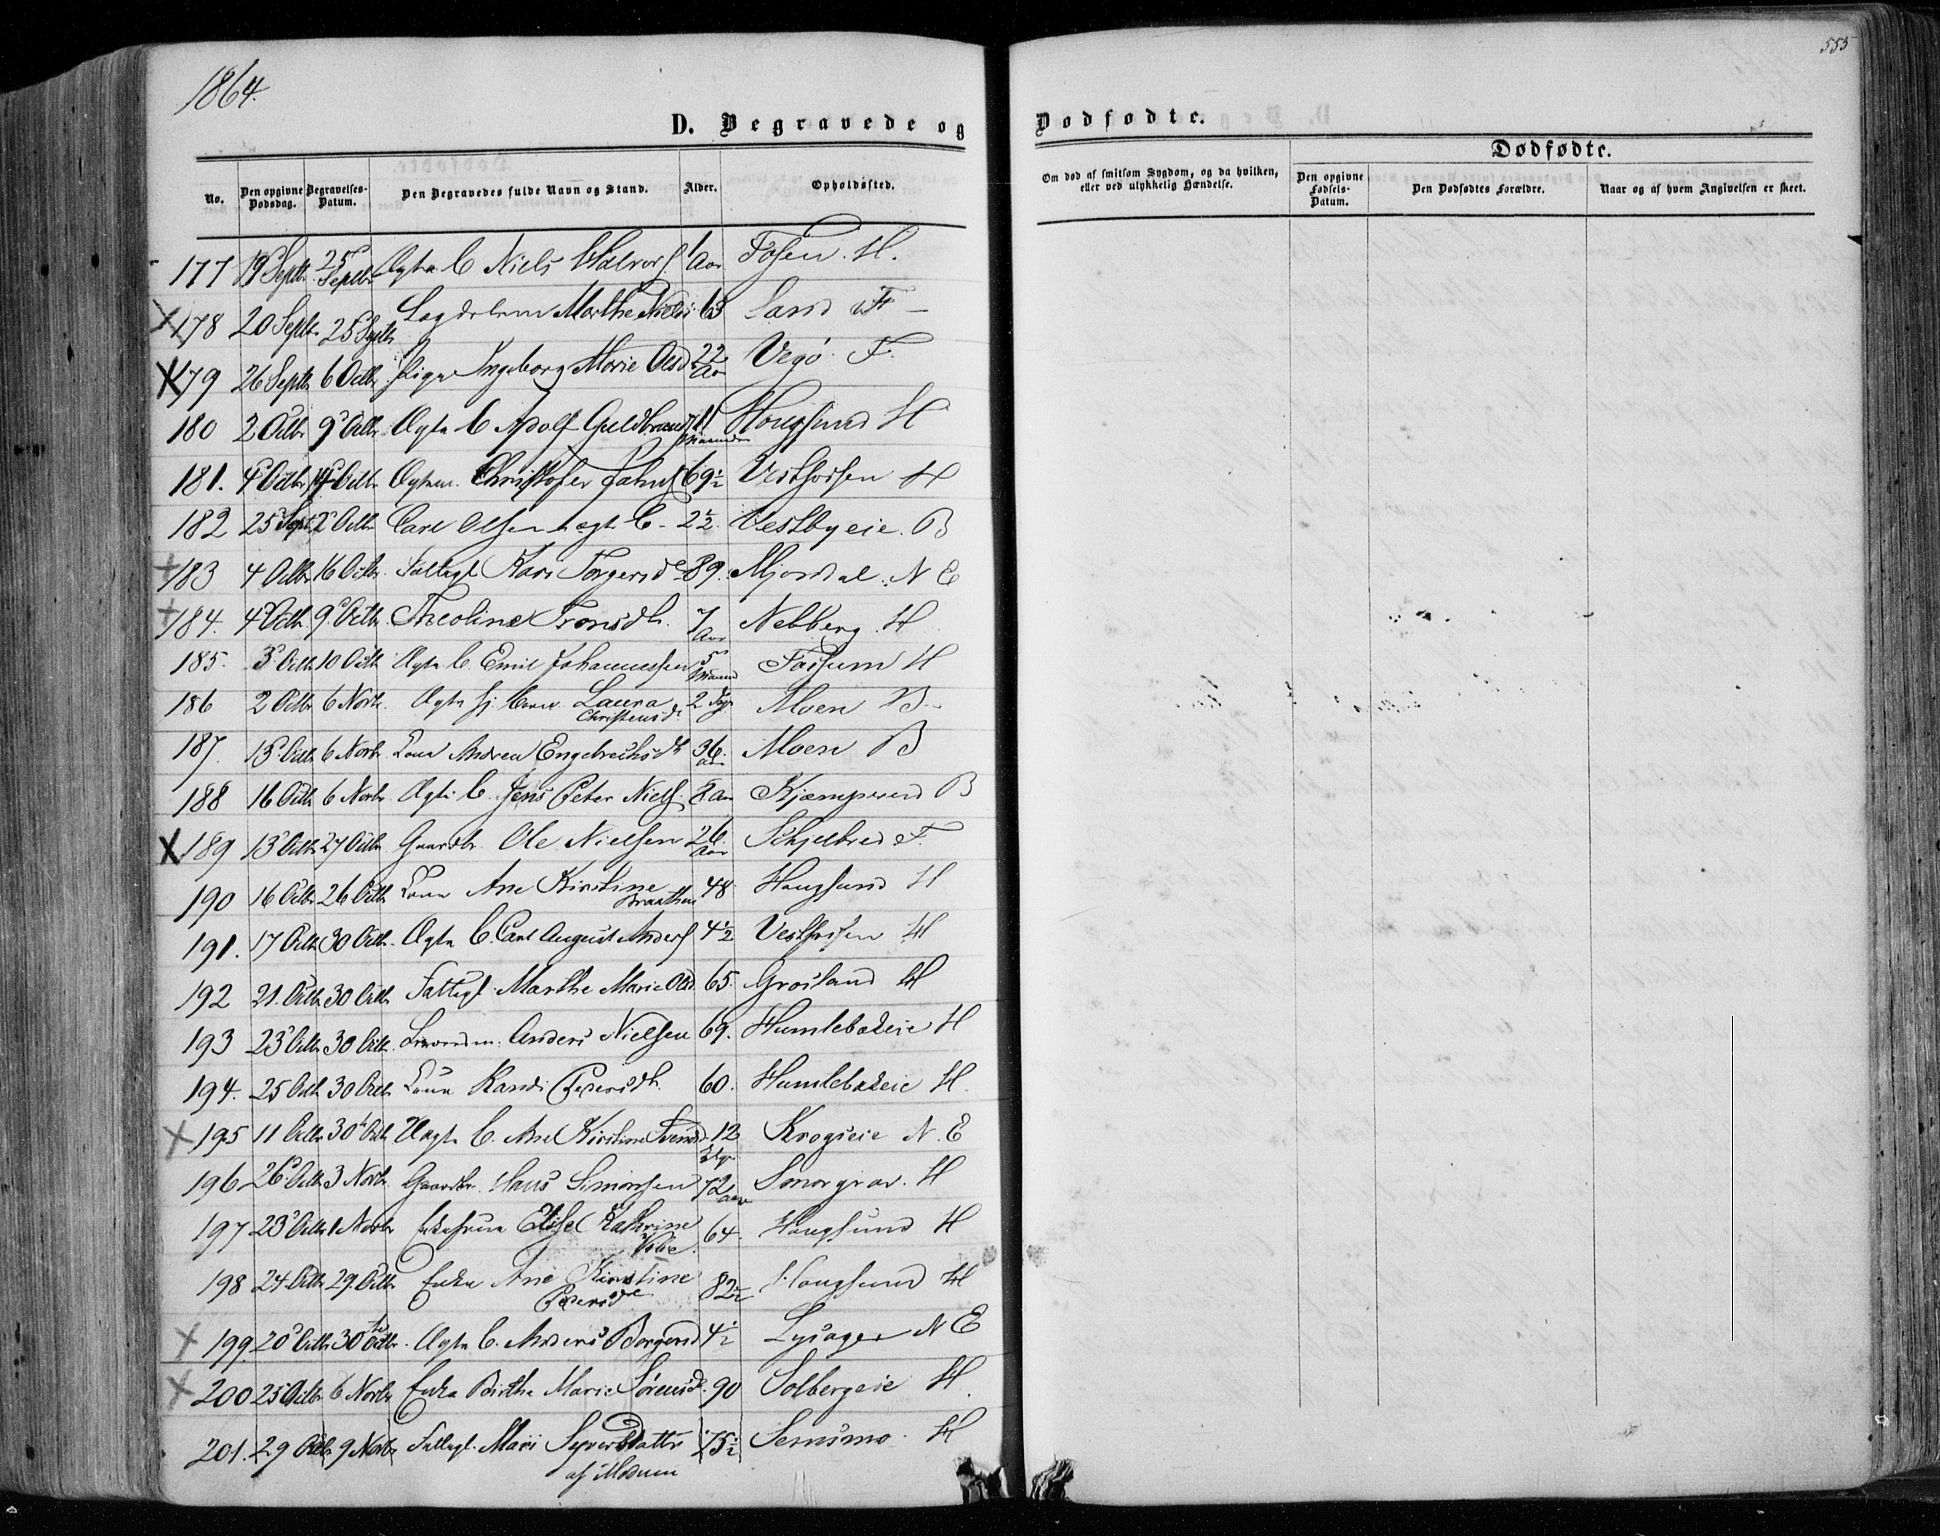 1864.
555
D. Begravede og
Dødfødte.
No.
Den opgivne Dødsdag.
Begravelses-Datum.
Den Begravedes fulde Navn og Stand.
Alder.
Opholdssted.
Om død af smitsom Sygdom, og da hvilken, eller ved ulykkelig Hændelse.
Dødfødte.
Den opgivne Fødsels-Datum.
Den Dødfødtes Forældre.
Naar og af hvem Angivelsen er skeet.
177 19 Septbr 25 Septbr Ægte C Niels Halvors. 1 Aar Fosen. H.
178 20 Septbr 25 Septbr Marthe Nielsd 63 Sand F
179 26 Septbr 6 Octbr Pige Ingeborg Marie Olsd 22 Aar Vegø F.
180 2 Octbr 9 Octbr Ægte C Adolf Guldbrands 11 Maaneder Hougsund H
181. 4 Octbr 14 Octbr Christofer Johns 69½ Vestfossen H
182 25 Sept 2 Octbr Carl Olsen ægt C 2½ Vestbyeie. B
183 4 Octbr 16 Octbr Fattigl Kari Torgersd 89. Mjøndal. N E
184. 4 Octbr 9 Octbr Theoline Tronsdtr. 7 Aar Nebberg. H
185. 3 Octbr 10 Octbr Ægte C Emil Johannessen 5 Maaned Fossum H
186 2 Octbr 6 Novbr Ægte Laura Christensd 2 Dage Moen B
187. 13 Octbr 6 Novbr Kone Andrea Engebrechtsdtr 36 aar Moen B
188 16 Octbr 6 Novbr Ægte C. Jens Peter Niels. 8 Aar Kjæmperud B
189 13 Octbr 27 Octbr Gaardbr. Ole Nielsen 26 Aar Schjelbred F.
190 16 Octbr 26 Octbr Kone Ane Kirstine Braathen 48 Hougsund H
191. 17 Octbr 30 Octbr Ægte C. Carl August Anders 4½ Vestfossen H
192 21. Octbr 30 Octbr Fattigl. Marthe Marie Olsd 65. Grosland H
193 23 Octbr 30 Octbr Anders Nielsen 69. Humlebækeie H
194. 25 Octbr 30 Octbr Kone Randi Pedersdtr. 60. Humlebækeie H.
195 11 Octbr 30 Octbr Uægte C. Ane Kirstine Svensd 12 Dage Krogseie N. E
196 26 Octbr 3 Novbr. Gaardbr. Hans Simonsen 72 aar Smørgrav. H
197 23 Octbr 1 Novbr Enkefrue Elise Kathrine 64. Hougsund H
198 24 Octbr 29. Octbr Enke Ane Kirstine Pedersd 82½ Hougsund H
199. 20 Octbr 30te Octbr. Ægte C. Anders Borgers 4½ Lysager N E
200 25 Octbr 6 Novbr Enke Birthe Marie Sørensd. 90 Solbergeie H.
201. 29 Octbr 9 Novbr Fattigl. Mari Syverdatter af Modum 75½ Semsmo. H